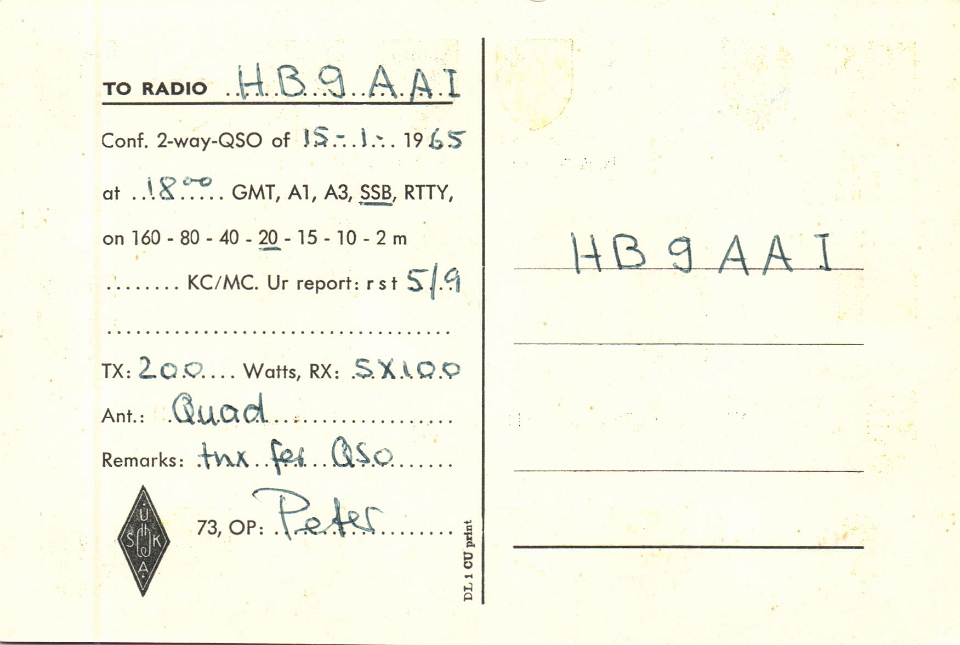 TO RADIO HB9AAI
Conf. 2-way-QSO of 15.1. 1965
at 18⁰⁰ GMT, A1, A3, SSB, RTTY,
on 160 - 80 - 40 - 20 - 15 - 10 - 2 m
........ KC/MC. Ur report: rst 5/9
TX: 200 .... Watts, RX: SX100
Ant.: Quad
Remarks: tnx fer QSO
73, OP: Peter
U
S K
A
DL 1 CU print
HB9AAI